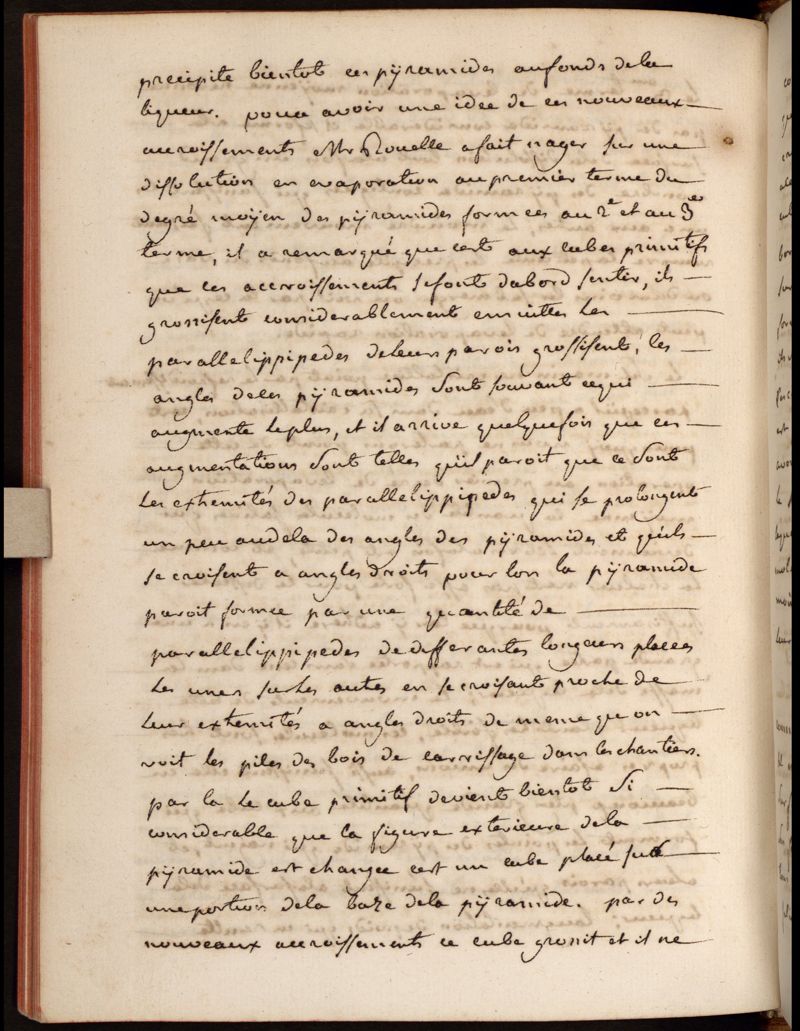 precipite bientot ces pÿramides aufonds dela
liqueur. pour avoir une idee de ces nouveaux
accroissements Mr Rouelle a fait nager sur une
dissolution en evaporation au premier terme du
degré moÿen des pÿramides formees au 2e et au 3e
terme, il a remarqué que c'est aux cubes primitifs
que ces accroissements se font dabord sentir, ils
grossissent considerablement ensuittes les
parallelippipedes deleurs parois grossissent, les
angles deces pÿramides sont souvant cequi
augmente leplus, et il arrive quelquefois que ces
augmentations sont telles qu'il paroit que ce sont
les extremités des parallelippipedes qui se prolongent
un peu audela des angles des pÿramides et qu'ils
se croisent a angles droits pour lors la pÿramide
paroit formee par une quantité de
parallelippipedes dedifferantes longeurs placees
les unes surles autes en secroisant proche de
leur extremités a angles droits de meme qu on
voit les piles des bois de carrissage dans les chantiers.
par la le cube primitif devient bientot si
considerable que la figure exterieure dela
pÿramide est changee cest un cube placé sur
une portion dela baze dela pÿramide. par des
nouveaux accroissements ce cube grossit et il ne